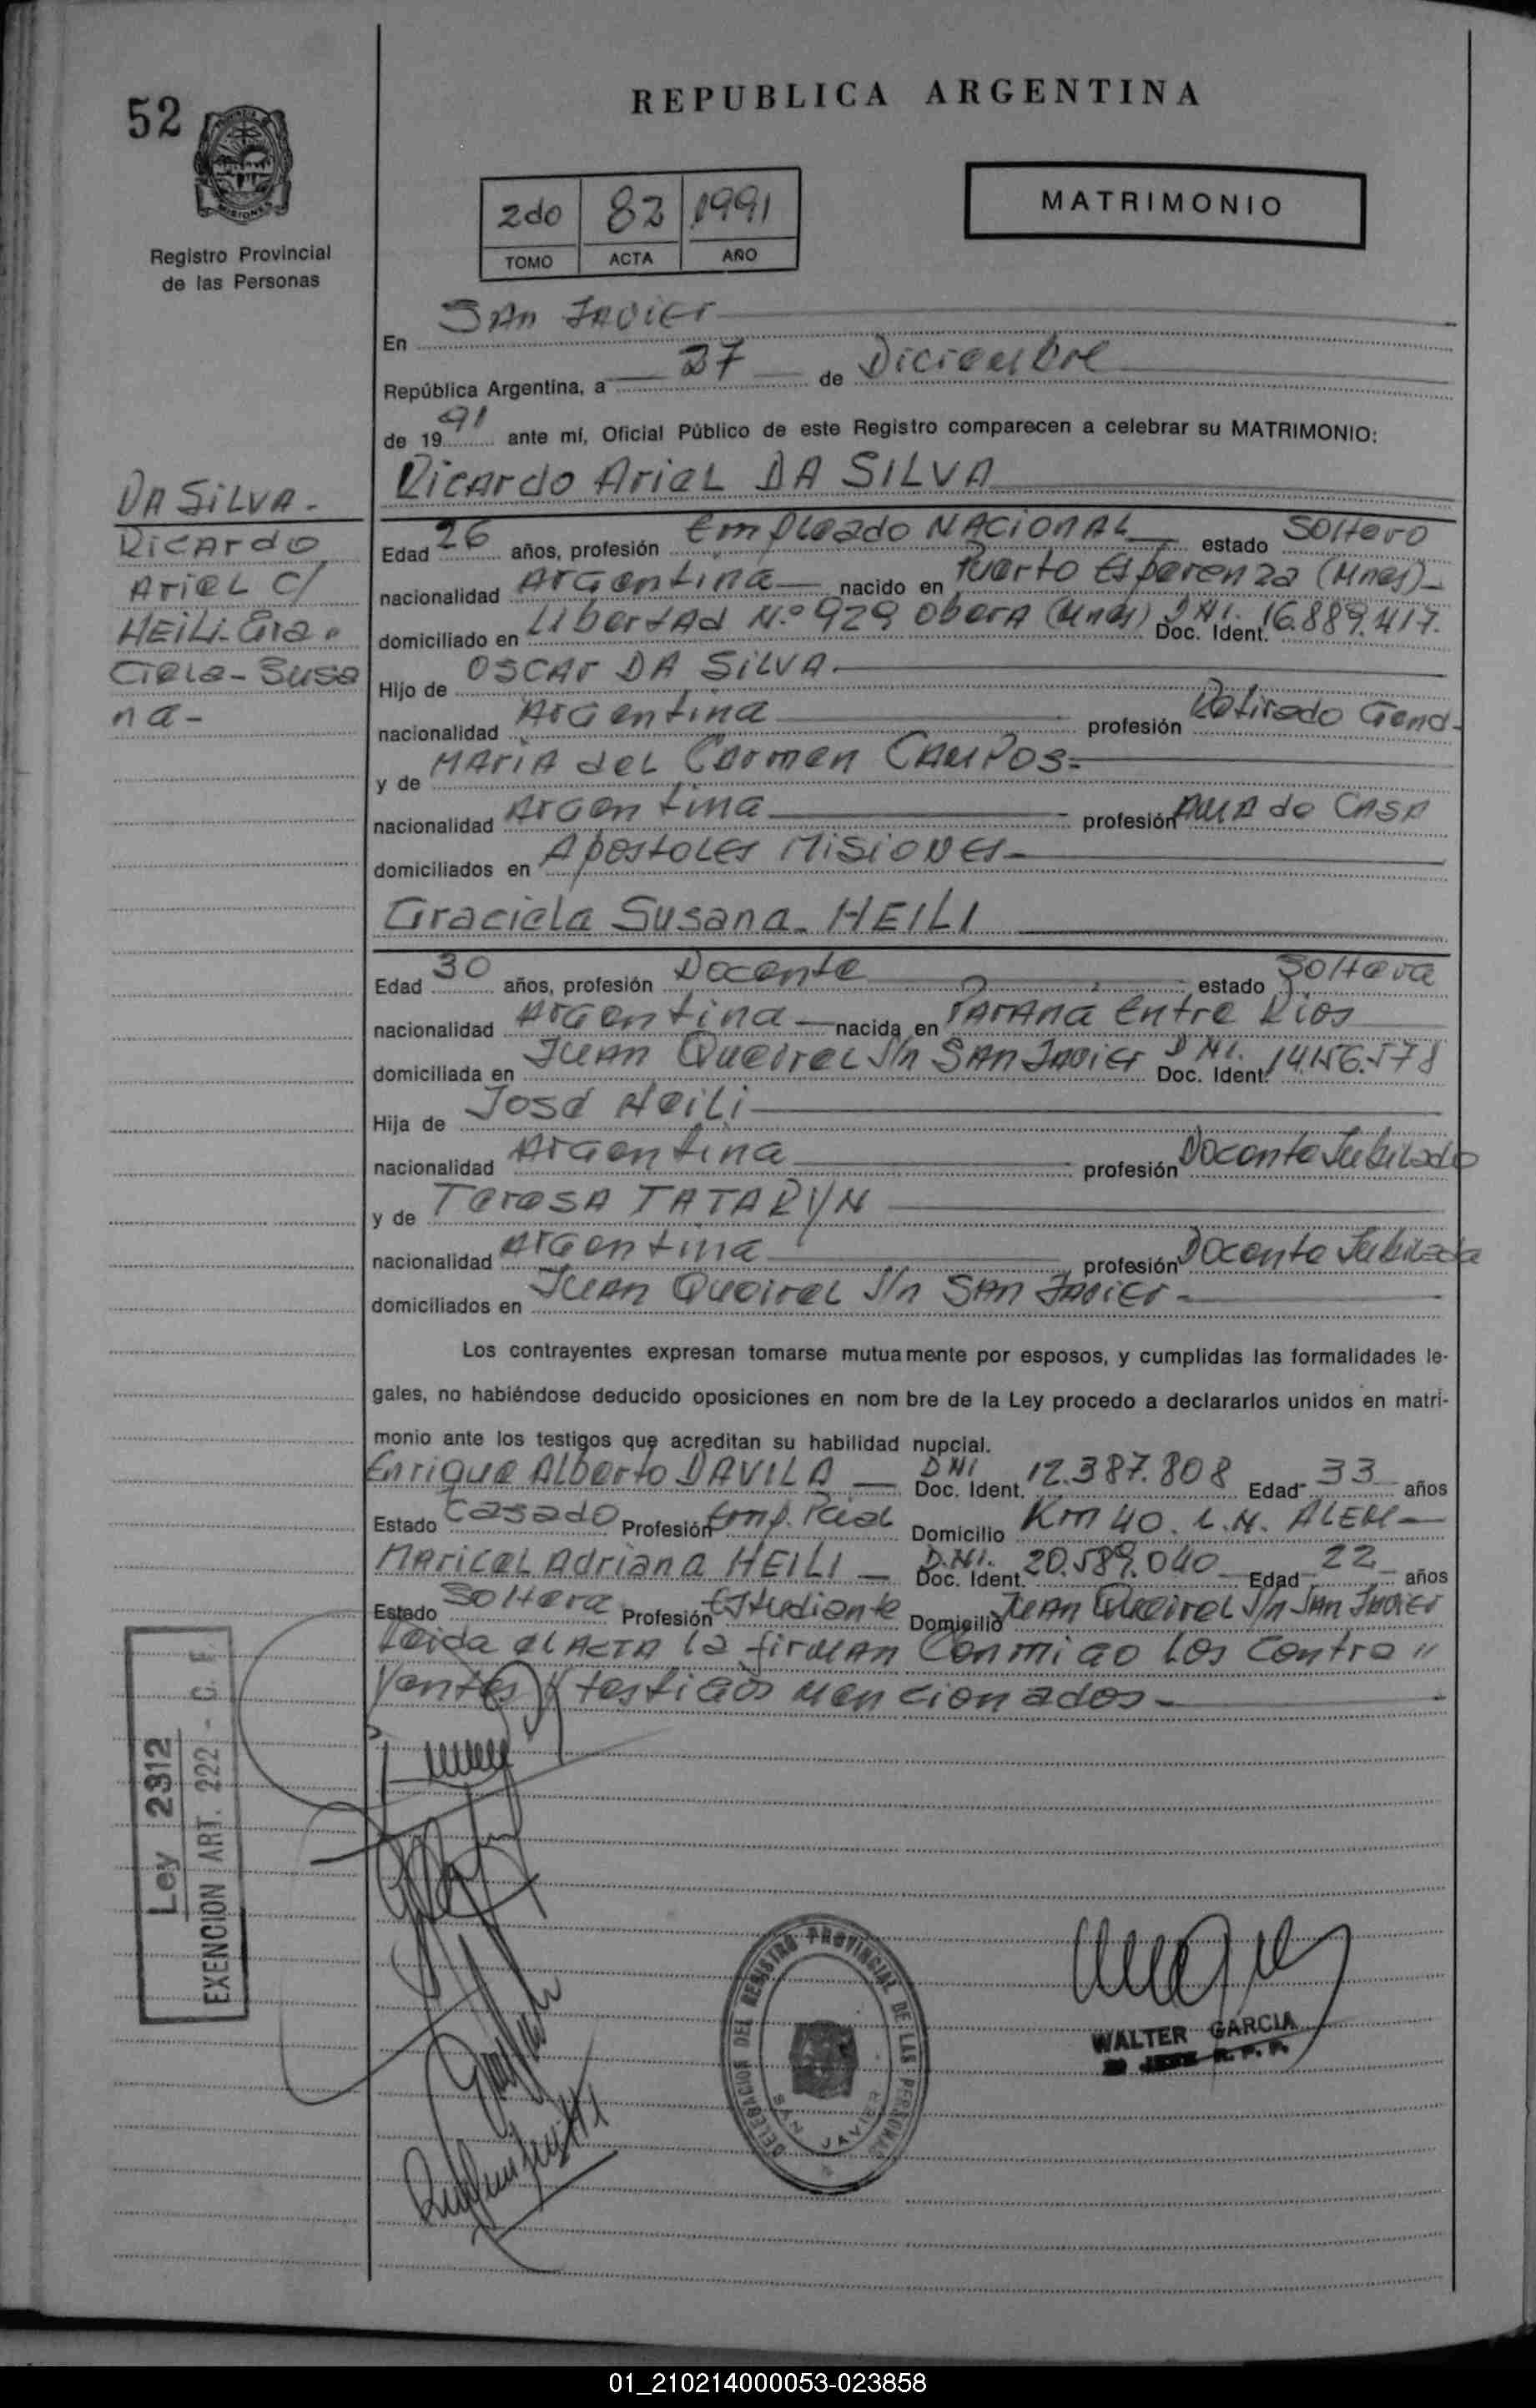 52
REPUBLICA ARGENTINA
2do 82 1991
TOMO ACTA AÑO
MATRIMONIO
Registro Provincial
de las Personas
En San Javier
República Argentina, a 27 de Diciembre
de 1991 ante mí, Oficial Público de este Registro comparecen a celebrar su MATRIMONIO:
DA SILVA -
Ricardo
Ariel c/
HEILI-Gra"
ciela-Susa
na-
Ricardo Ariel DA SILVA
Edad 26 años, profesión Empleado NACIONAL estado Soltero
nacionalidad Argentina nacido en Puerto Esperenza (Mnes)-
domiciliado en Libertad N.º 929 Oberá (Mnes) Doc. Ident. D.N.I. 16.889.417.
Hijo de OSCAR DA SILVA.
nacionalidad Argentina profesión Retirado Gend-
y de MARIA del Carmen CAMPOS-
nacionalidad Argentina profesión AMA de CASA
domiciliados en Apostoles MISIONES-
Graciela Susana HEILI
Edad 30 años, profesión Docente estado Soltera
nacionalidad Argentina nacida en PARANá Entre Rios
domiciliada en JUAN Queirel S/n SAN JAVIER Doc. Ident. DNI. 14.156.578
Hija de José Heili
nacionalidad Argentina profesión Docente Jubilado
y de Teresa TATARYN
nacionalidad Argentina profesión Docente Jubilada
domiciliados en JUAN Queirel S/n SAN JAVIER-
Los contrayentes expresan tomarse mutuamente por esposos, y cumplidas las formalidades le-
gales, no habiéndose deducido oposiciones en nom bre de la Ley procedo a declararlos unidos en matri-
monio ante los testigos que acreditan su habilidad nupcial.
Enrique Alberto DAVILA Doc. Ident. DNI 12.387.808 Edad 33 años
Estado Casado Profesión Emp. Pcial Domicilio Km 40. L.N. ALEM
Maricel Adriana HEILI Doc. Ident. D.NI. 20.589.040 Edad 22 años
Estado Soltera Profesión Estudiante Domicilio JUAN Queirel S/n San Javier
Leida el ACTA la firman conmigo los contra"
yentes y testigos mencionados-
Ley 2312
EXENCION ART. 222 - C. F.
DELEGACION DEL REGISTRO PROVINCIAL DE LAS PERSONAS
SAN JAVIER
WALTER GARCIA
JEFE R. P. P.
01_210214000053-023858